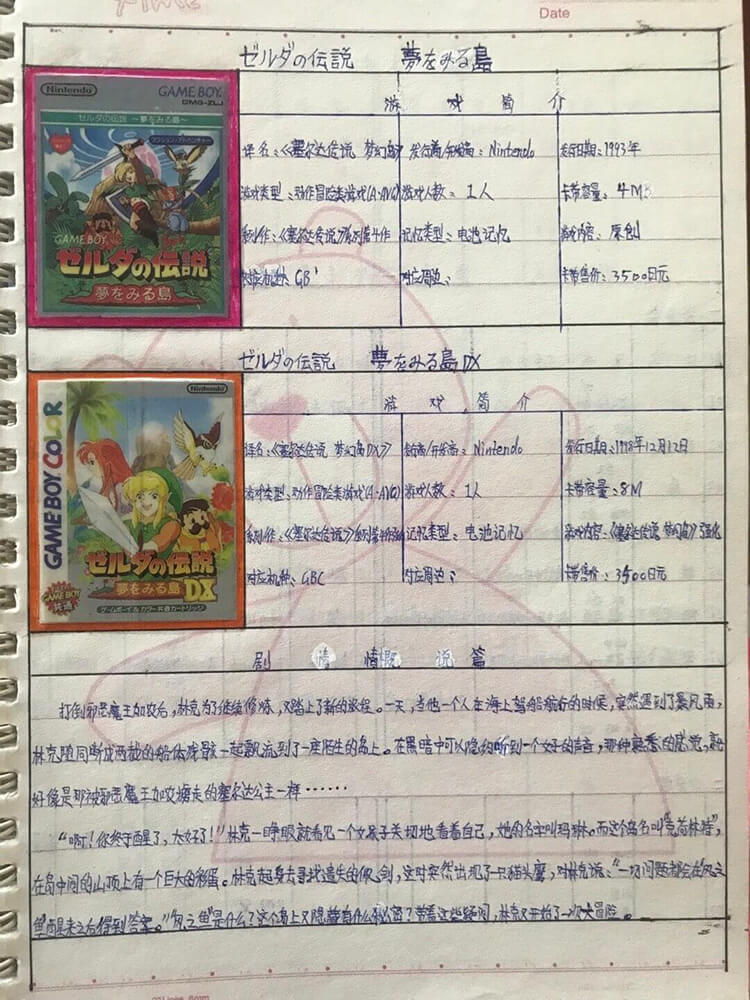 Date
ゼルダの伝説 夢をみる島
Nintendo
GAME BOY
DMG-ZLJ
ゼルダの伝説 〜夢をみる島〜
アクション・アドベンチャー
GAME BOY
ゼルダの伝説
夢をみる島
游 戏 简 介
译名:《塞尔达传说 梦幻岛》 发行商/开发商:Nintendo 发行日期:1993年
游戏类型:动作冒险类游戏(A·AVG) 游戏人数:1人 卡带容量:4M
系列作:《塞尔达传说》系列第4作 记忆类型:电池记忆 游戏内容:原创
对应机种:GB 对应周边: 卡带售价:3500日元
ゼルダの伝説 夢をみる島DX
Nintendo
GAME BOY COLOR
ゼルダの伝説
夢をみる島
DX
GAME BOY
共通
ゲームボーイ&カラー共通カートリッジ
游 戏 简 介
译名:《塞尔达传说 梦幻岛DX》 发售商/开发商:Nintendo 发行日期:1998年12月12日
游戏类型:动作冒险类游戏(A·AVG) 游戏人数:1人 卡带容量:8M
系列作:《塞尔达传说》系列第4作 记忆类型:电池记忆 游戏内容:《塞尔达传说 梦幻岛》强化
对应机种:GBC 对应周边: 卡带售价:3500日元
剧 情 概 说 篇
打倒邪恶魔王加农后,林克为了继续修炼,又踏上了新的旅程。一天,当他一个人在海上驾船航行的时候,突然遇到了暴风雨,
林克随同断成两截的船体残骸一起飘流到了一座陌生的岛上。在黑暗中可以隐约听到一个女子的声音,那种亲香的感觉,就
好像是那被邪恶魔王加农掳走的塞尔达公主一样……
“啊!你终于醒了,太好了!”林克一睁眼就看见一个女孩子关切地看着自己,她的名字叫玛琳。而这个岛名叫“克荷林特”,
在岛中间的山顶上有一个巨大的彩蛋。林克起身去寻找遗失的佩剑,这时突然出现了一只猫头鹰,对林克说:“一切问题都会在风之
鱼醒来之后得到答案。”“风之鱼”是什么?这个岛上又隐藏有什么秘密?带着这些疑问,林克又开始了一次大冒险。